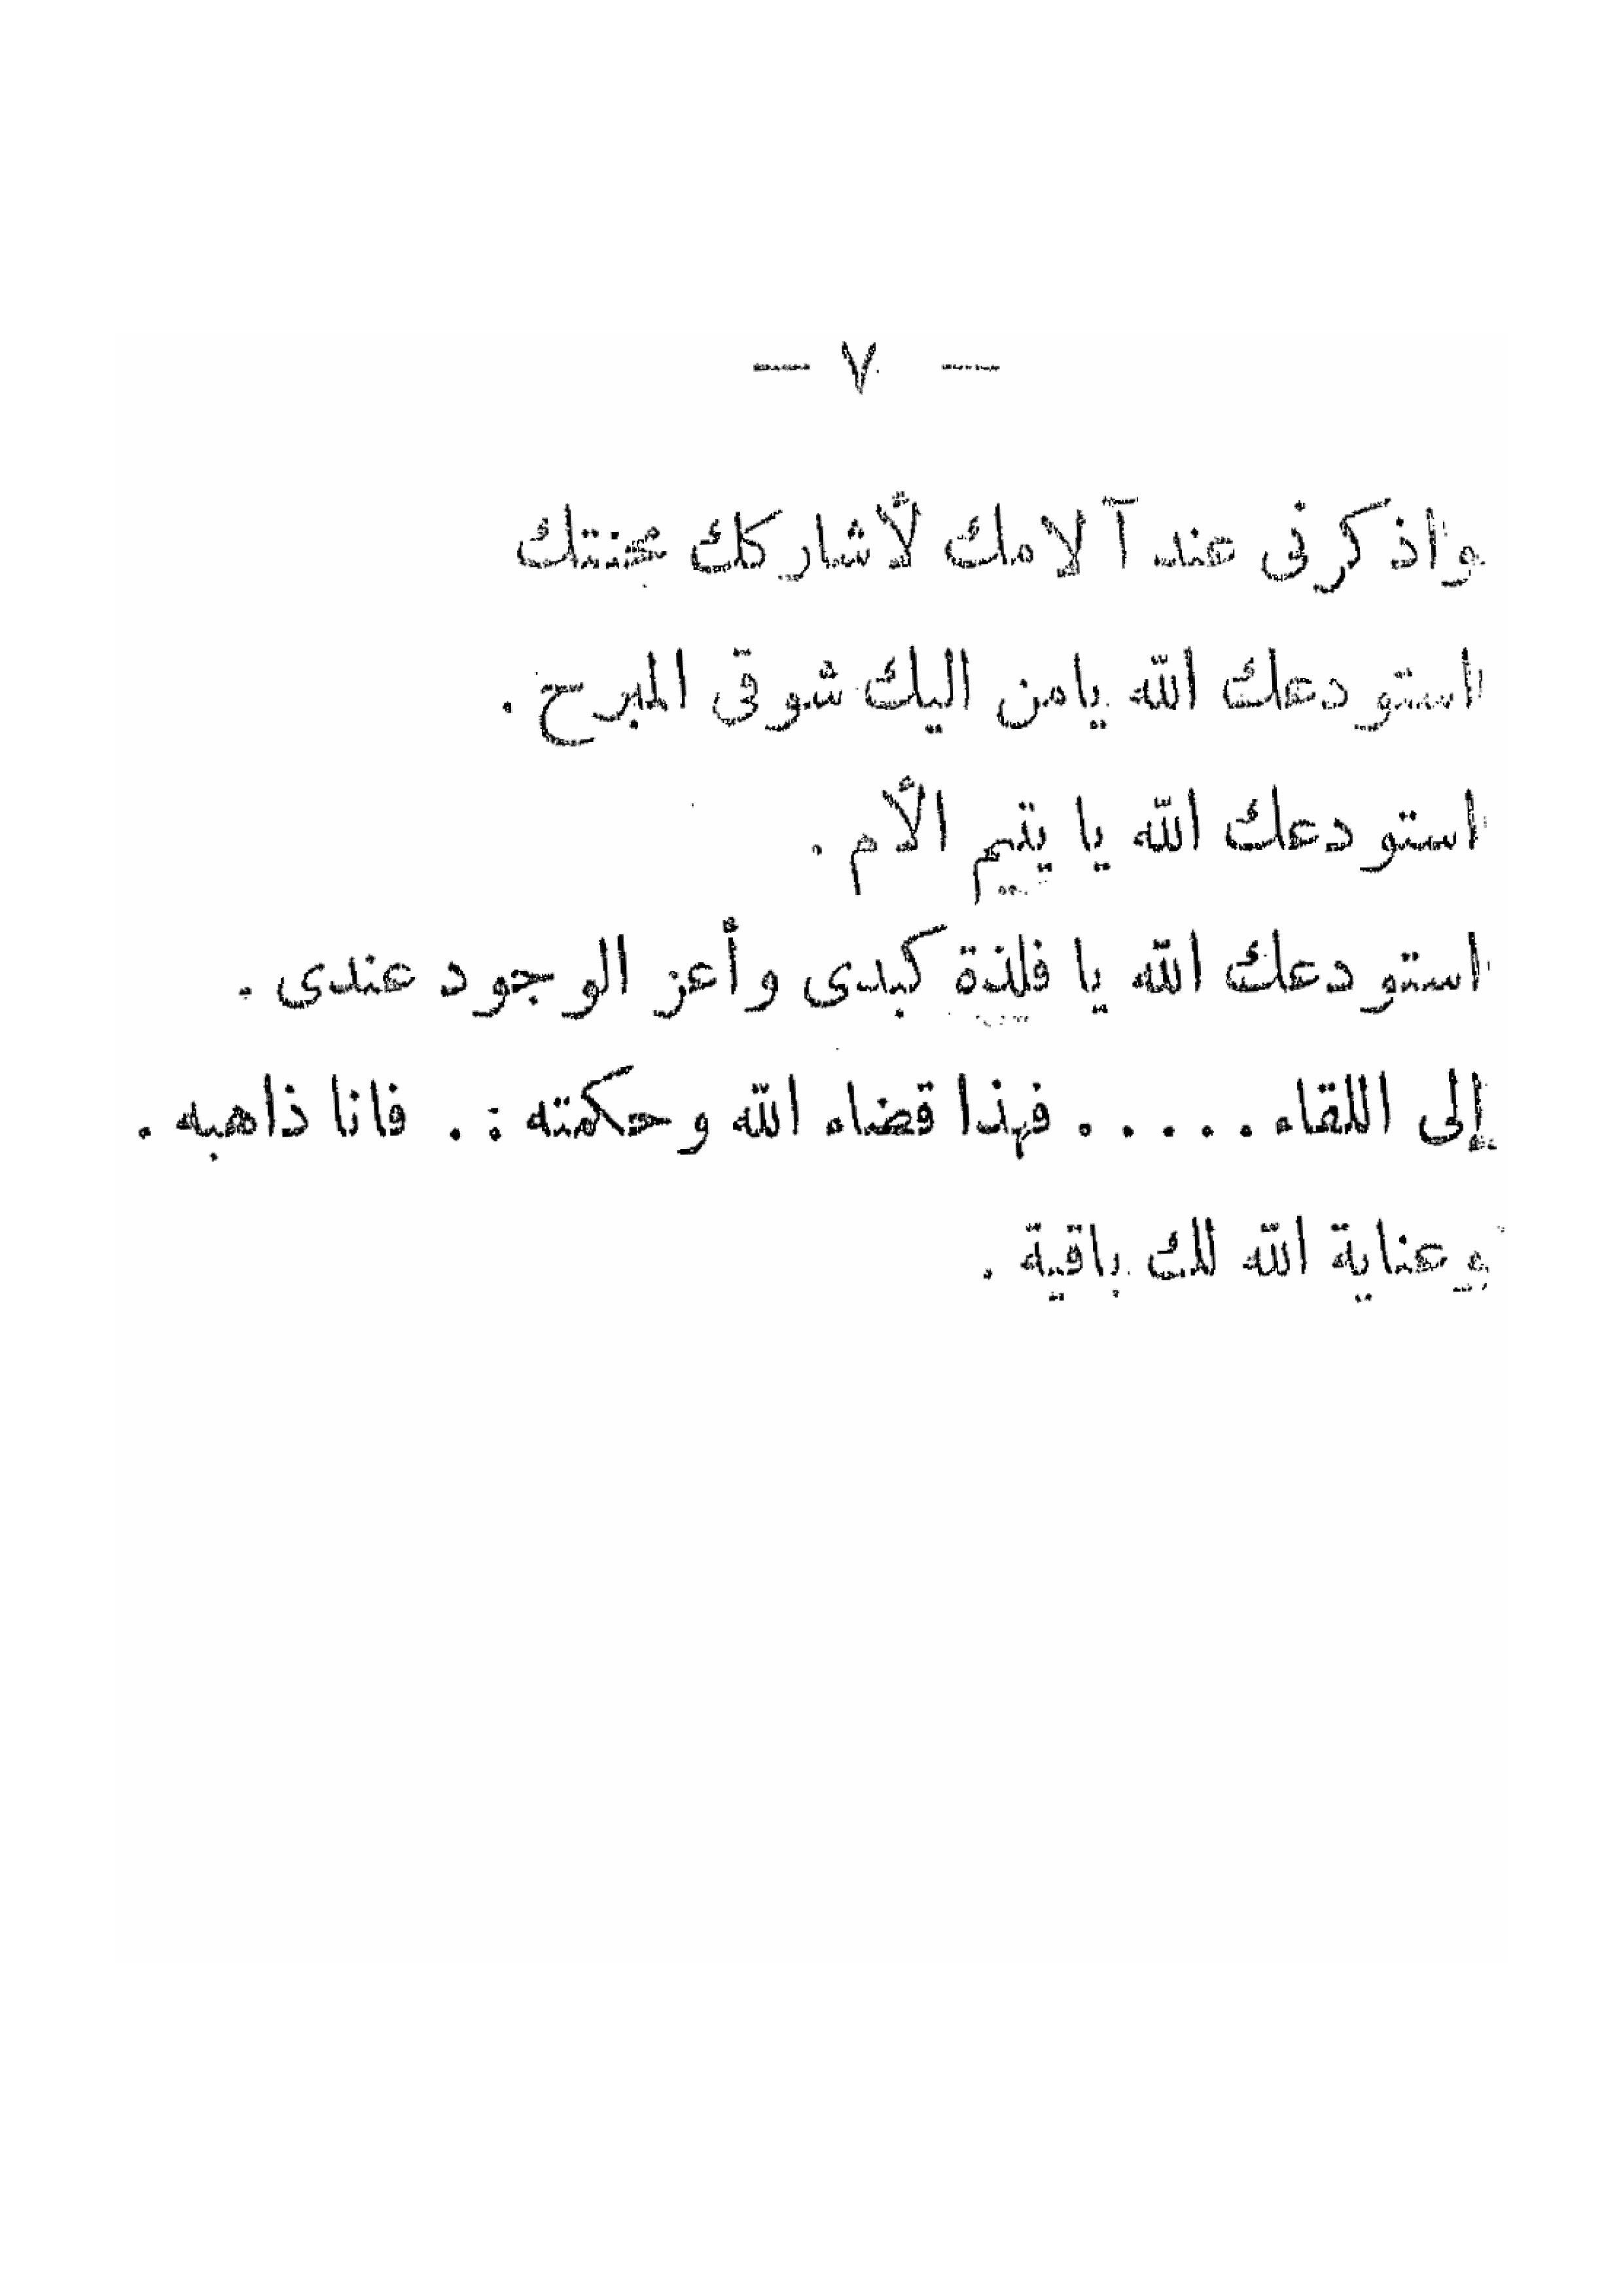 — ٧ —
واذكرنى عند آلامك لأشاركك محنتك
استودعك الله يامن اليك شوقى المبرح .
استودعك الله يا يتيم الأم .
استودعك الله يا فلذة كبدى وأعز الوجود عندى .
إلى اللقاء ..... فهذا قضاء الله وحكمته : . فانا ذاهبه .
وعناية الله لك باقية .